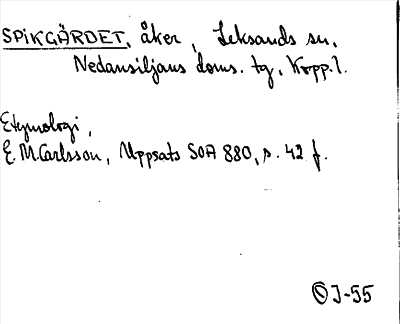 SPIKGÄRDET, åker, Leksands sn,
Nedansiljans doms. tg, Kopp. l.
Etymologi,
E. M. Carlsson, Uppsats SOA 880, s. 42 f.
J-55